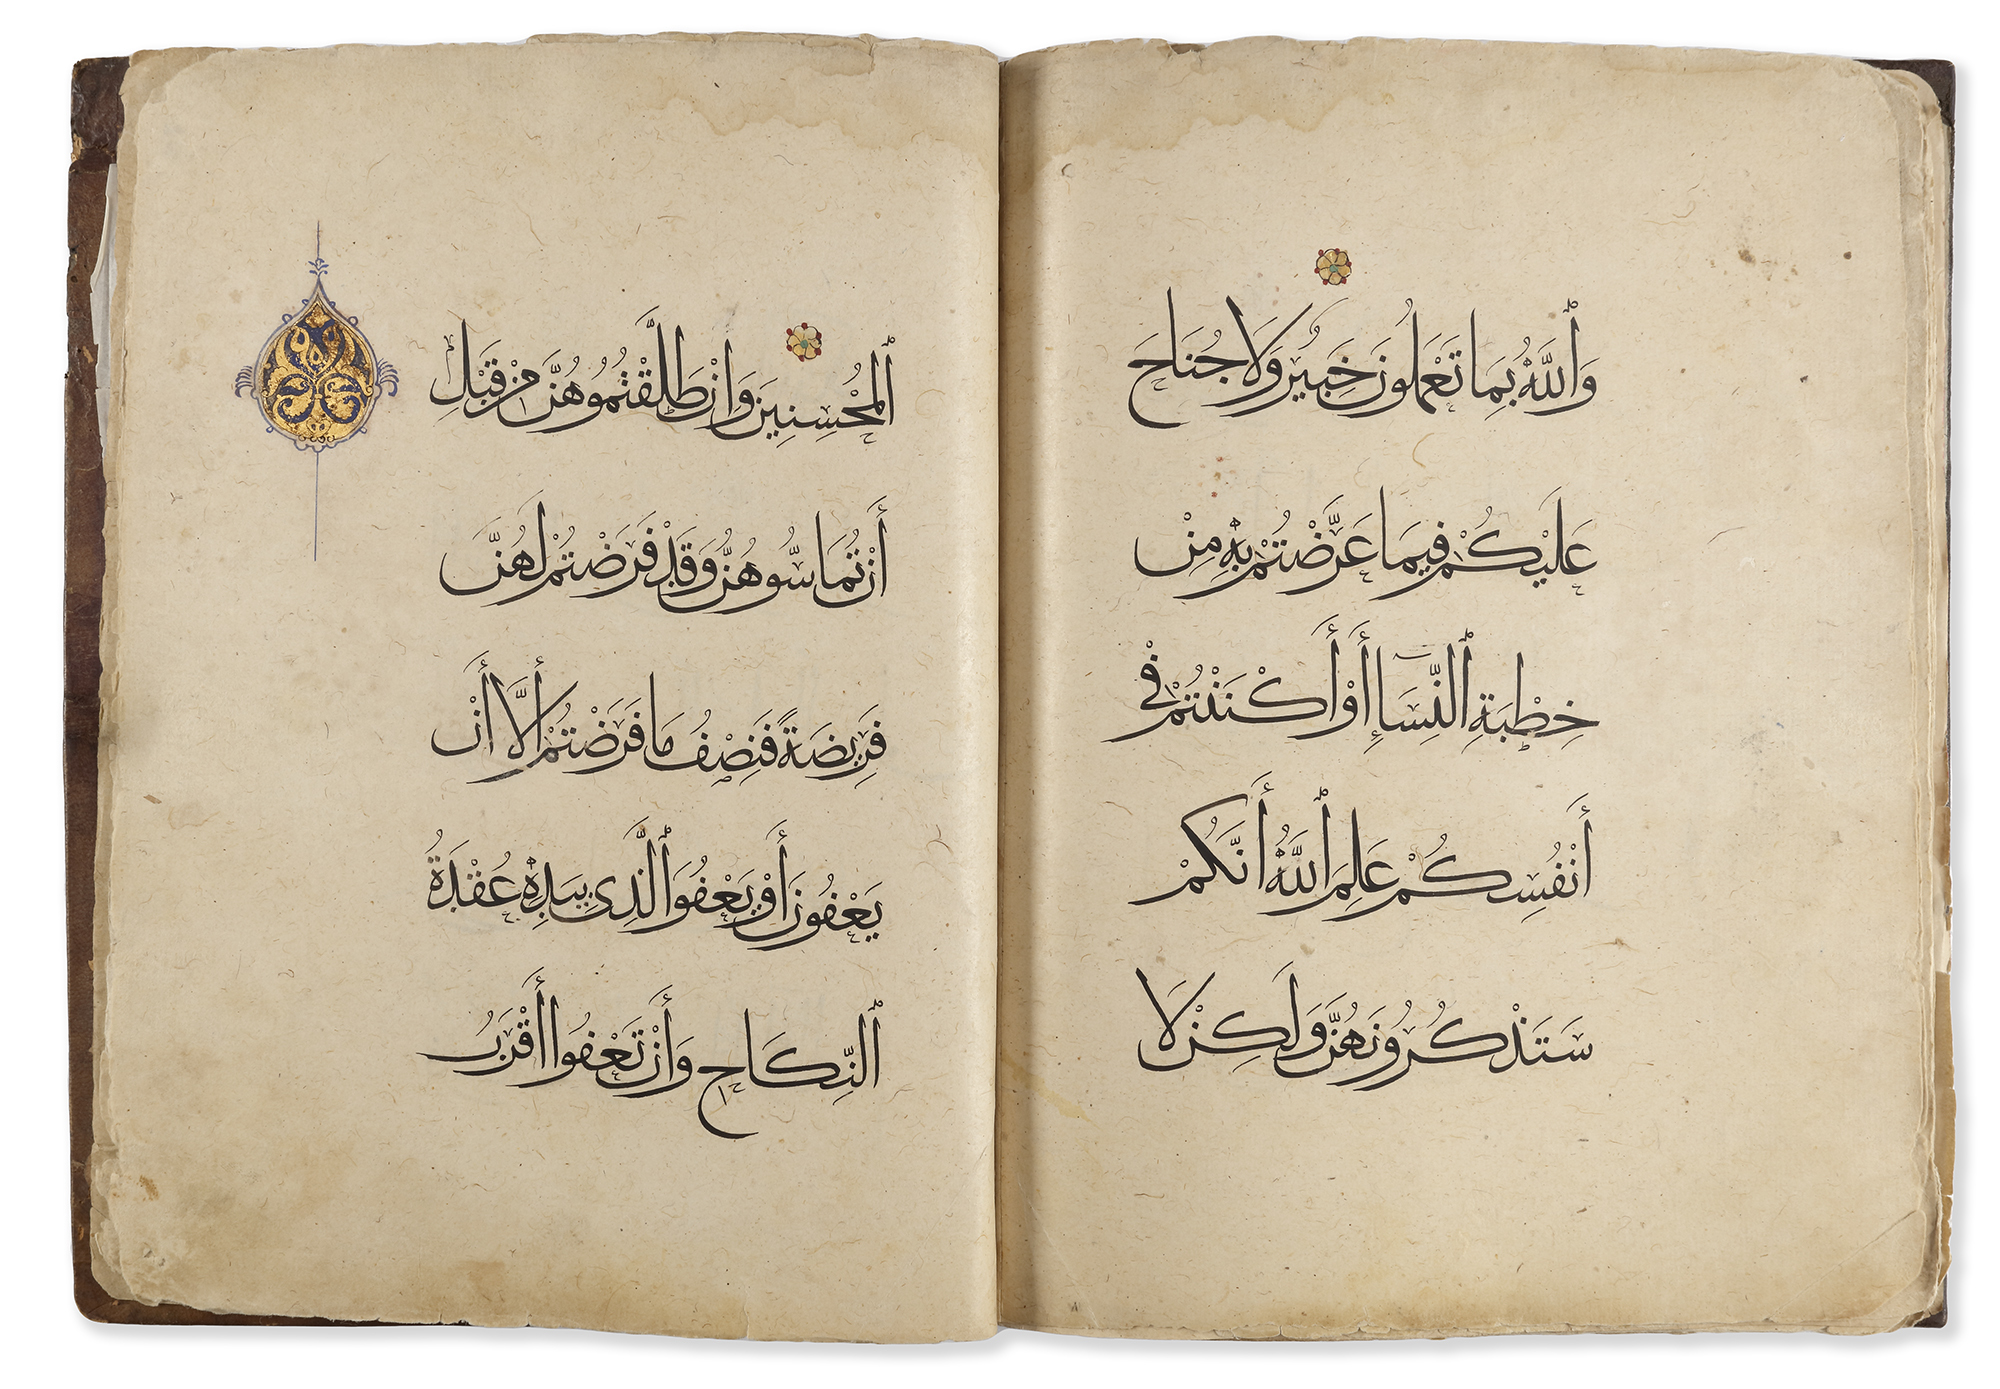 وَٱللَّهُ بِمَا تَعْمَلُونَ خَبِيرٌ وَلَا جُنَاحَ
عَلَيْكُمْ فِيمَا عَرَّضْتُمْ بِهِ مِنْ
خِطْبَةِ ٱلنِّسَاءِ أَوْ أَكْنَنْتُمْ فِي
أَنْفُسِكُمْ عَلِمَ ٱللَّهُ أَنَّكُمْ
سَتَذْكُرُونَهُنَّ وَلَكِنْ لَا
ٱلْمُحْسِنِينَ وَإِنْ طَلَّقْتُمُوهُنَّ مِنْ قَبْلِ
أَنْ تُمَاسُّوهُنَّ وَقَدْ فَرَضْتُمْ لَهُنَّ
فَرِيضَةً فَنِصْفُ مَا فَرَضْتُمْ إِلَّا أَنْ
يَعْفُونَ أَوْ يَعْفُوَ ٱلَّذِي بِيَدِهِ عُقْدَةُ
ٱلنِّكَاحِ وَأَنْ تَعْفُوا أَقْرَبُ